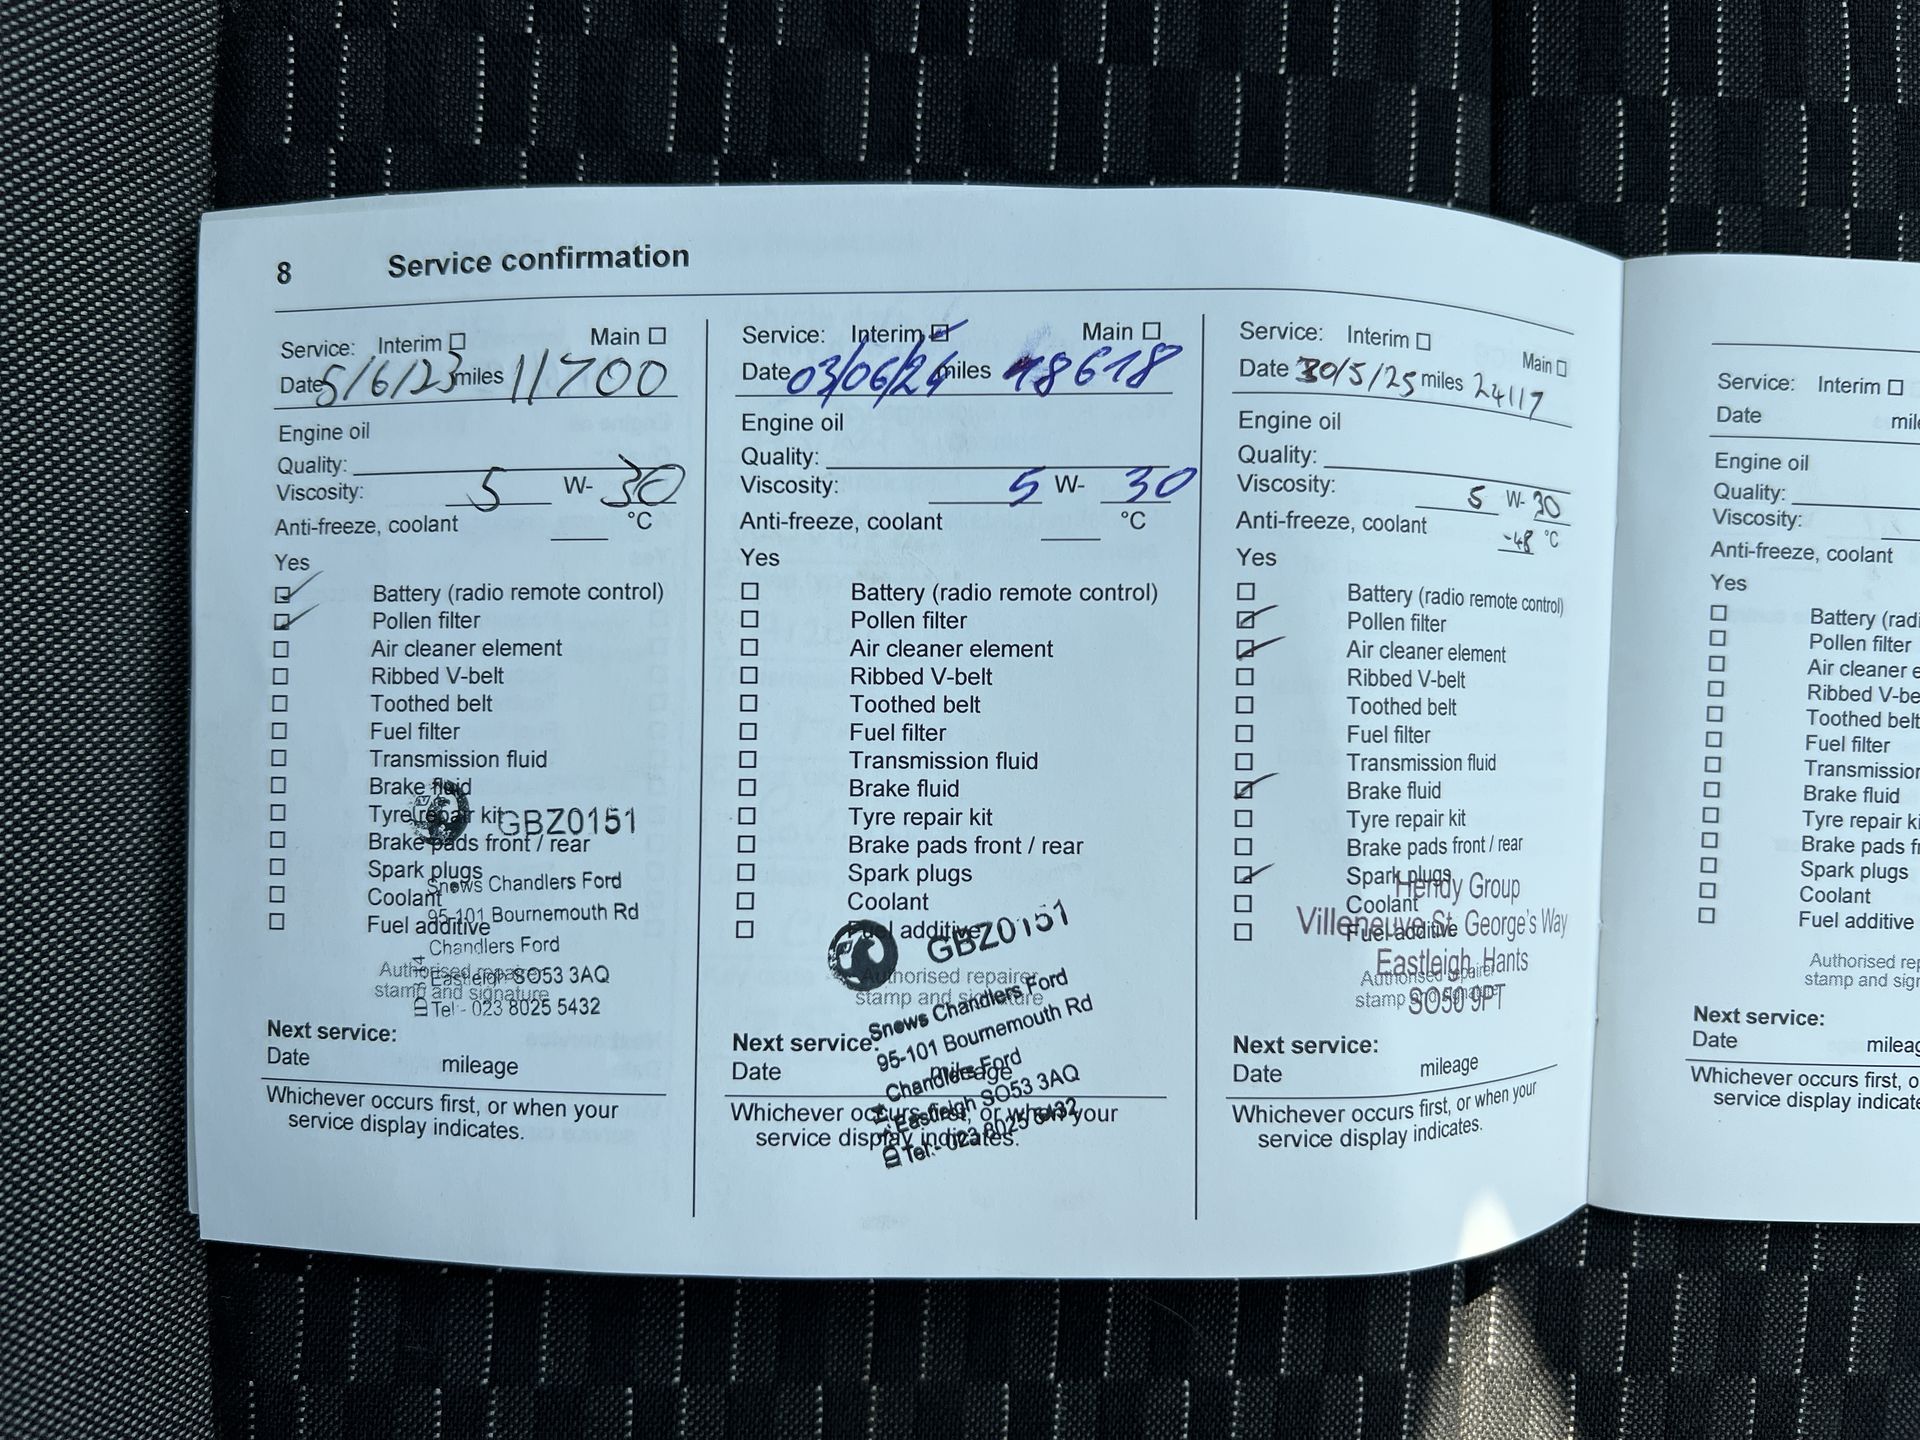 8 Service confirmation
Service: Interim Main
Date 5/6/23 miles 11700
Engine oil
Quality:
Viscosity: 5 W- 30
Anti-freeze, coolant °C
Yes
Battery (radio remote control)
Pollen filter
Air cleaner element
Ribbed V-belt
Toothed belt
Fuel filter
Transmission fluid
Brake fluid
Tyre repair kit
GBZ0151
Brake pads front / rear
Spark plugs
Snows Chandlers Ford
Coolant
95-101 Bournemouth Rd
Fuel additive
Chandlers Ford
Authorised repairer
Eastleigh SO53 3AQ
stamp and signature
Tel:- 023 8025 5432
Next service:
Date mileage
Whichever occurs first, or when your
service display indicates.
Service: Interim Main
Date 03/06/24 miles 18618
Engine oil
Quality:
Viscosity: 5 W- 30
Anti-freeze, coolant °C
Yes
Battery (radio remote control)
Pollen filter
Air cleaner element
Ribbed V-belt
Toothed belt
Fuel filter
Transmission fluid
Brake fluid
Tyre repair kit
Brake pads front / rear
Spark plugs
Coolant
Fuel additive
GBZ0151
Authorised repairer
stamp and signature
Snows Chandlers Ford
95-101 Bournemouth Rd
Chandlers Ford
Eastleigh SO53 3AQ
Tel:- 023 8025 5432
Next service:
Date mileage
Whichever occurs first, or when your
service display indicates.
Service: Interim Main
Date 30/5/25 miles 24117
Engine oil
Quality:
Viscosity: 5 W- 30
Anti-freeze, coolant -48 °C
Yes
Battery (radio remote control)
Pollen filter
Air cleaner element
Ribbed V-belt
Toothed belt
Fuel filter
Transmission fluid
Brake fluid
Tyre repair kit
Brake pads front / rear
Spark plugs
Hendy Group
Coolant
Villeneuve St. George's Way
Fuel additive
Eastleigh, Hants
Authorised repairer
stamp and signature
SO50 9PT
Next service:
Date mileage
Whichever occurs first, or when your
service display indicates.
Service: Interim
Date
Engine oil
Quality:
Viscosity:
Anti-freeze, coolant
Yes
Battery
Pollen filter
Air cleaner
Ribbed
Toothed belt
Fuel filter
Brake fluid
Tyre repair
Brake pads
Spark plugs
Coolant
Fuel additive
Authorised
stamp and
Next service:
Date
Whichever occurs first,
service display